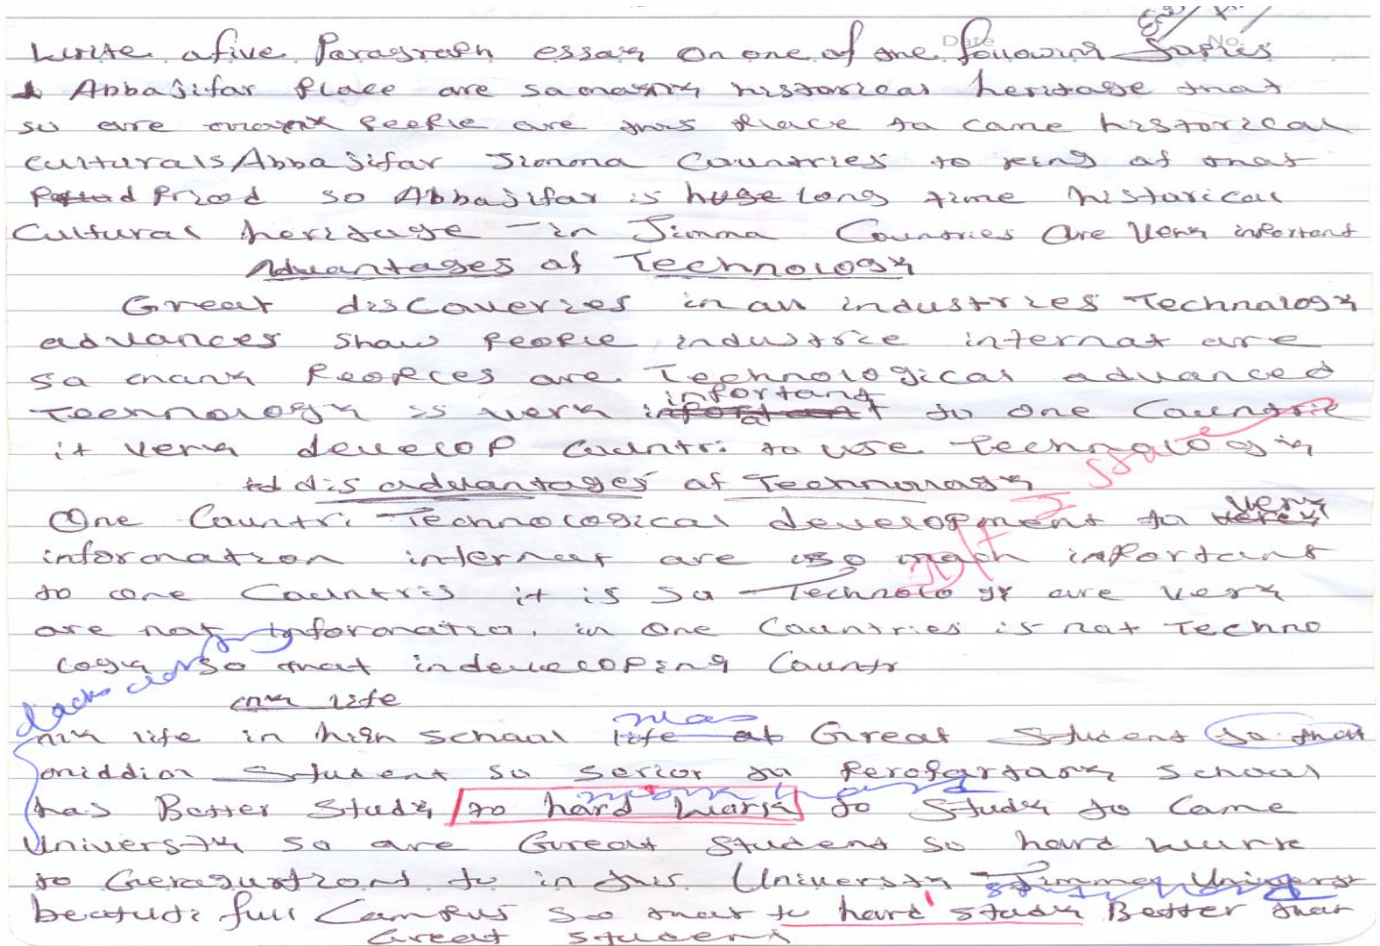 Date No.
Write afive Paragraph essay on one of one following Topics
Abbajifar Place are samanny historical heritage that
so are many people are this place to came historical
culturals Abbajifar Jimma Countries to king at that
Priod so Abbajifar is huge long time historical
Cultural heritage in Jimma Countries are Very inportant
Advantages of Technology
Great discoveries in all industries Technalogy
advances show people industrice internat are
sa many Peoples are Technological advanced
inportant
Technology is very to one Countrie
it very develop Cauntri to use Technology
dis advantages of Technology
One Cauntri Technological development to very
information internet are so much inportant
to one Cauntris it is so Technology are very
are not informatio. in one Countries is not Techno
logy so that indeveloping Countr
lacks clarity
my life
was
my life in high school life at Great Student so that
middim Student so serior to school
has Better Study to hard work to Study to Came
work hard
University so are Great Student so hard wurk
to to in this University Jimma Univers
study hard
full Campus so that to hard study Better that
Great student